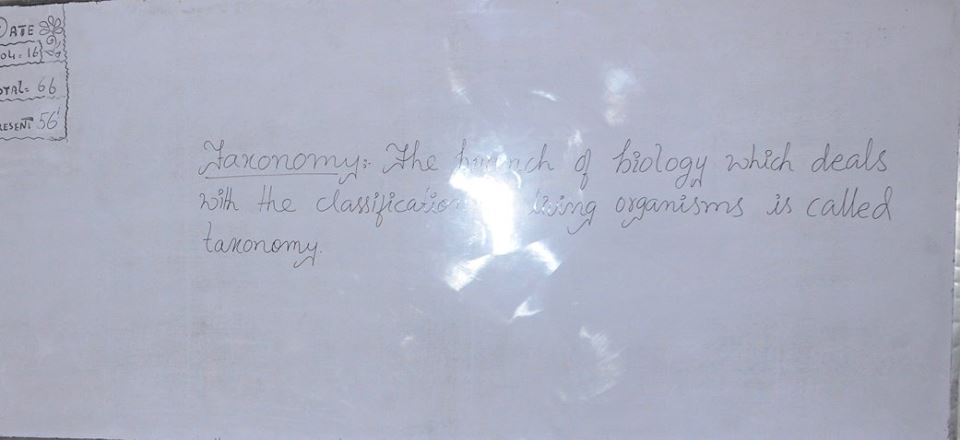 DATE
04-16
TOTAL= 66
PRESENT 56
Taxonomy:- The branch of biology which deals
with the classification living organisms is called
taxonomy.